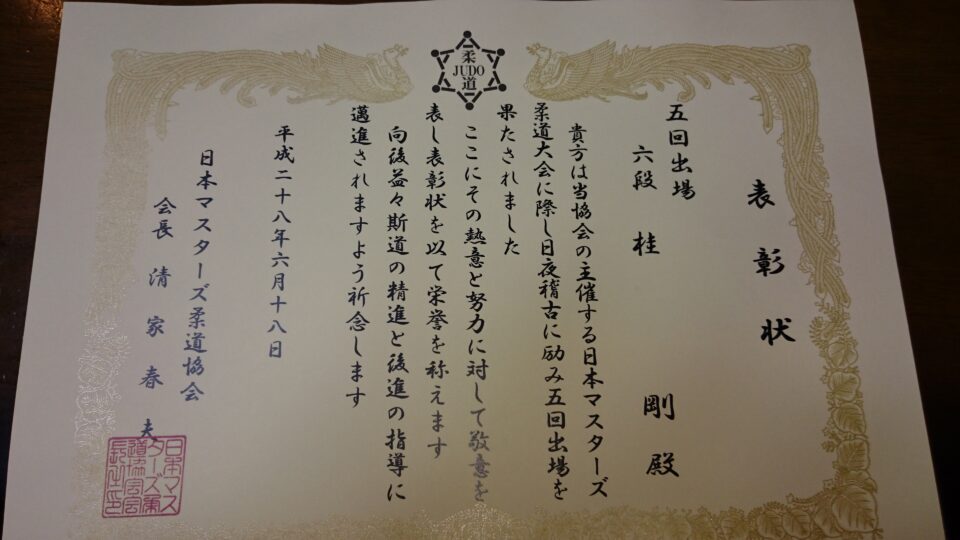 柔
JUDO
道
表彰状
五回出場
六段 桂 剛 殿
貴方は当協会の主催する日本マスターズ
柔道大会に際し日夜稽古に励み五回出場を
果たされました
ここにその熱意と努力に対して敬意を
表し表彰状を以て栄誉を称えます
向後益々斯道の精進と後進の指導に
邁進されますよう祈念します
平成二十八年六月十八日
日本マスターズ柔道協会
会長 清家春夫
日本マス
ターズ柔
道協会会
長之印